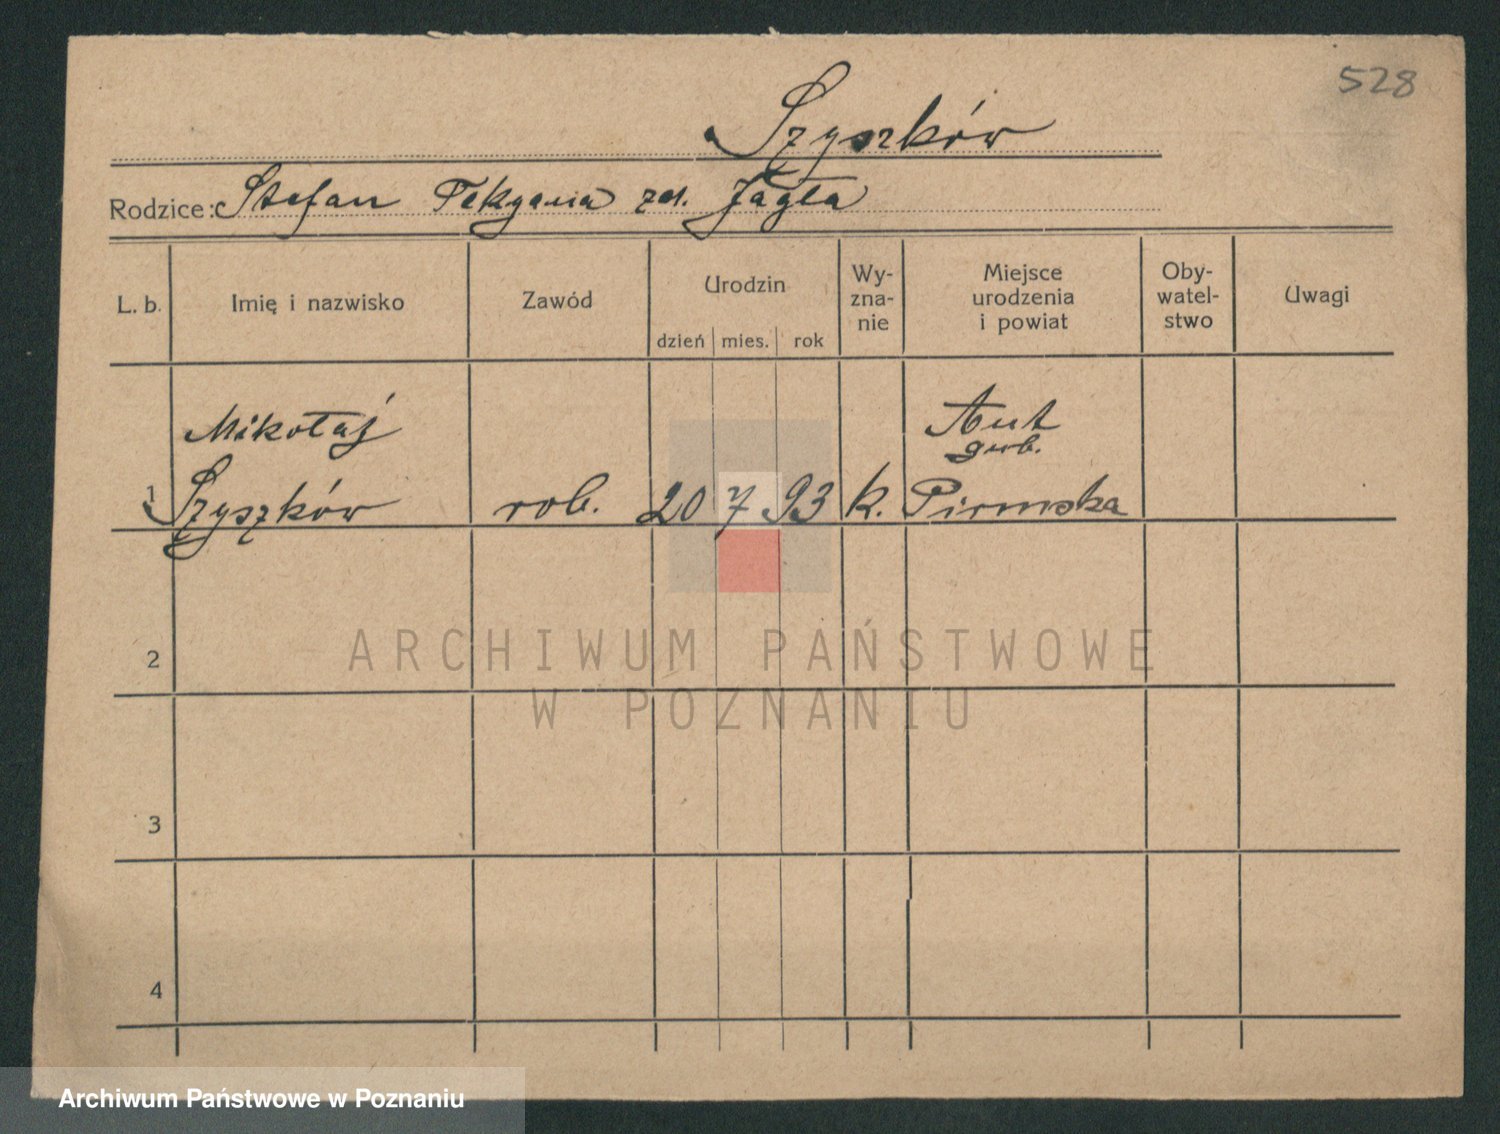 528
Szyszków
Rodzice: Stefan Tekgania zd. Jagła
L. b.
Imię i nazwisko
Zawód
Urodzin
dzień mies. rok
Wy-
zna-
nie
Miejsce
urodzenia
i powiat
Oby-
watel-
stwo
Uwagi
Mikołaj
Szyszków
1
rob.
20 7 93
k.
Aut
gub.
Pirmska
2
3
4
ARCHIWUM PAŃSTWOWE
W POZNANIU
Archiwum Państwowe w Poznaniu